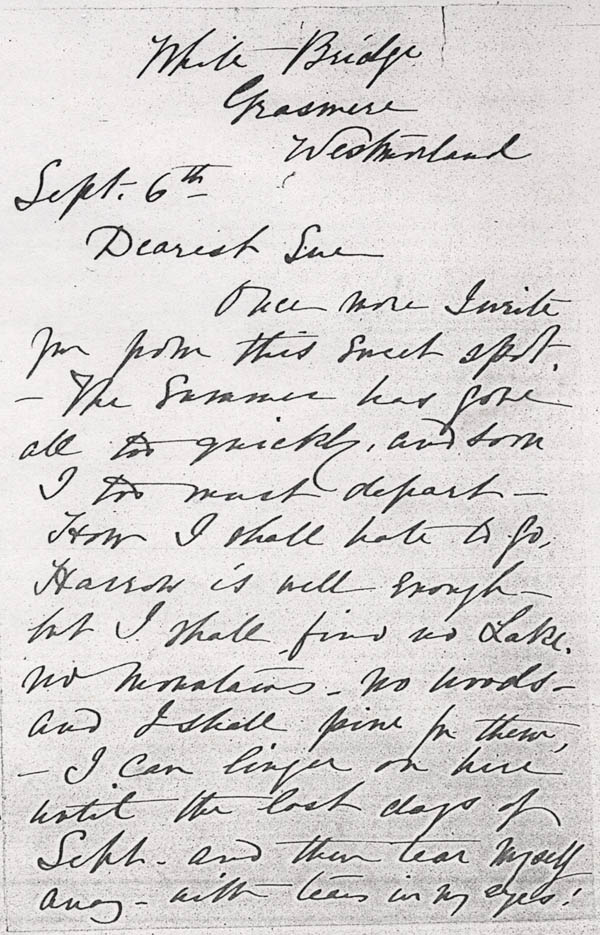 White Bridge
Grasmere
Westmorland
Sept. 6th
Dearest Sue
Once more I write
you from this sweet spot.
- The Summer has gone
all too quickly, and soon
I too must depart -
How I shall hate to go,
Harrow is well enough -
but I shall find no Lake.
no mountains - no woods -
and I shall pine for them,
- I can linger on here
until the last days of
Sept - and then tear myself
away - with tears in my eyes!